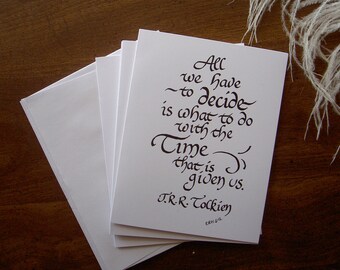 All
we have
to decide
is what to do
with the
Time
that is
given us.
J.R.R. Tolkien